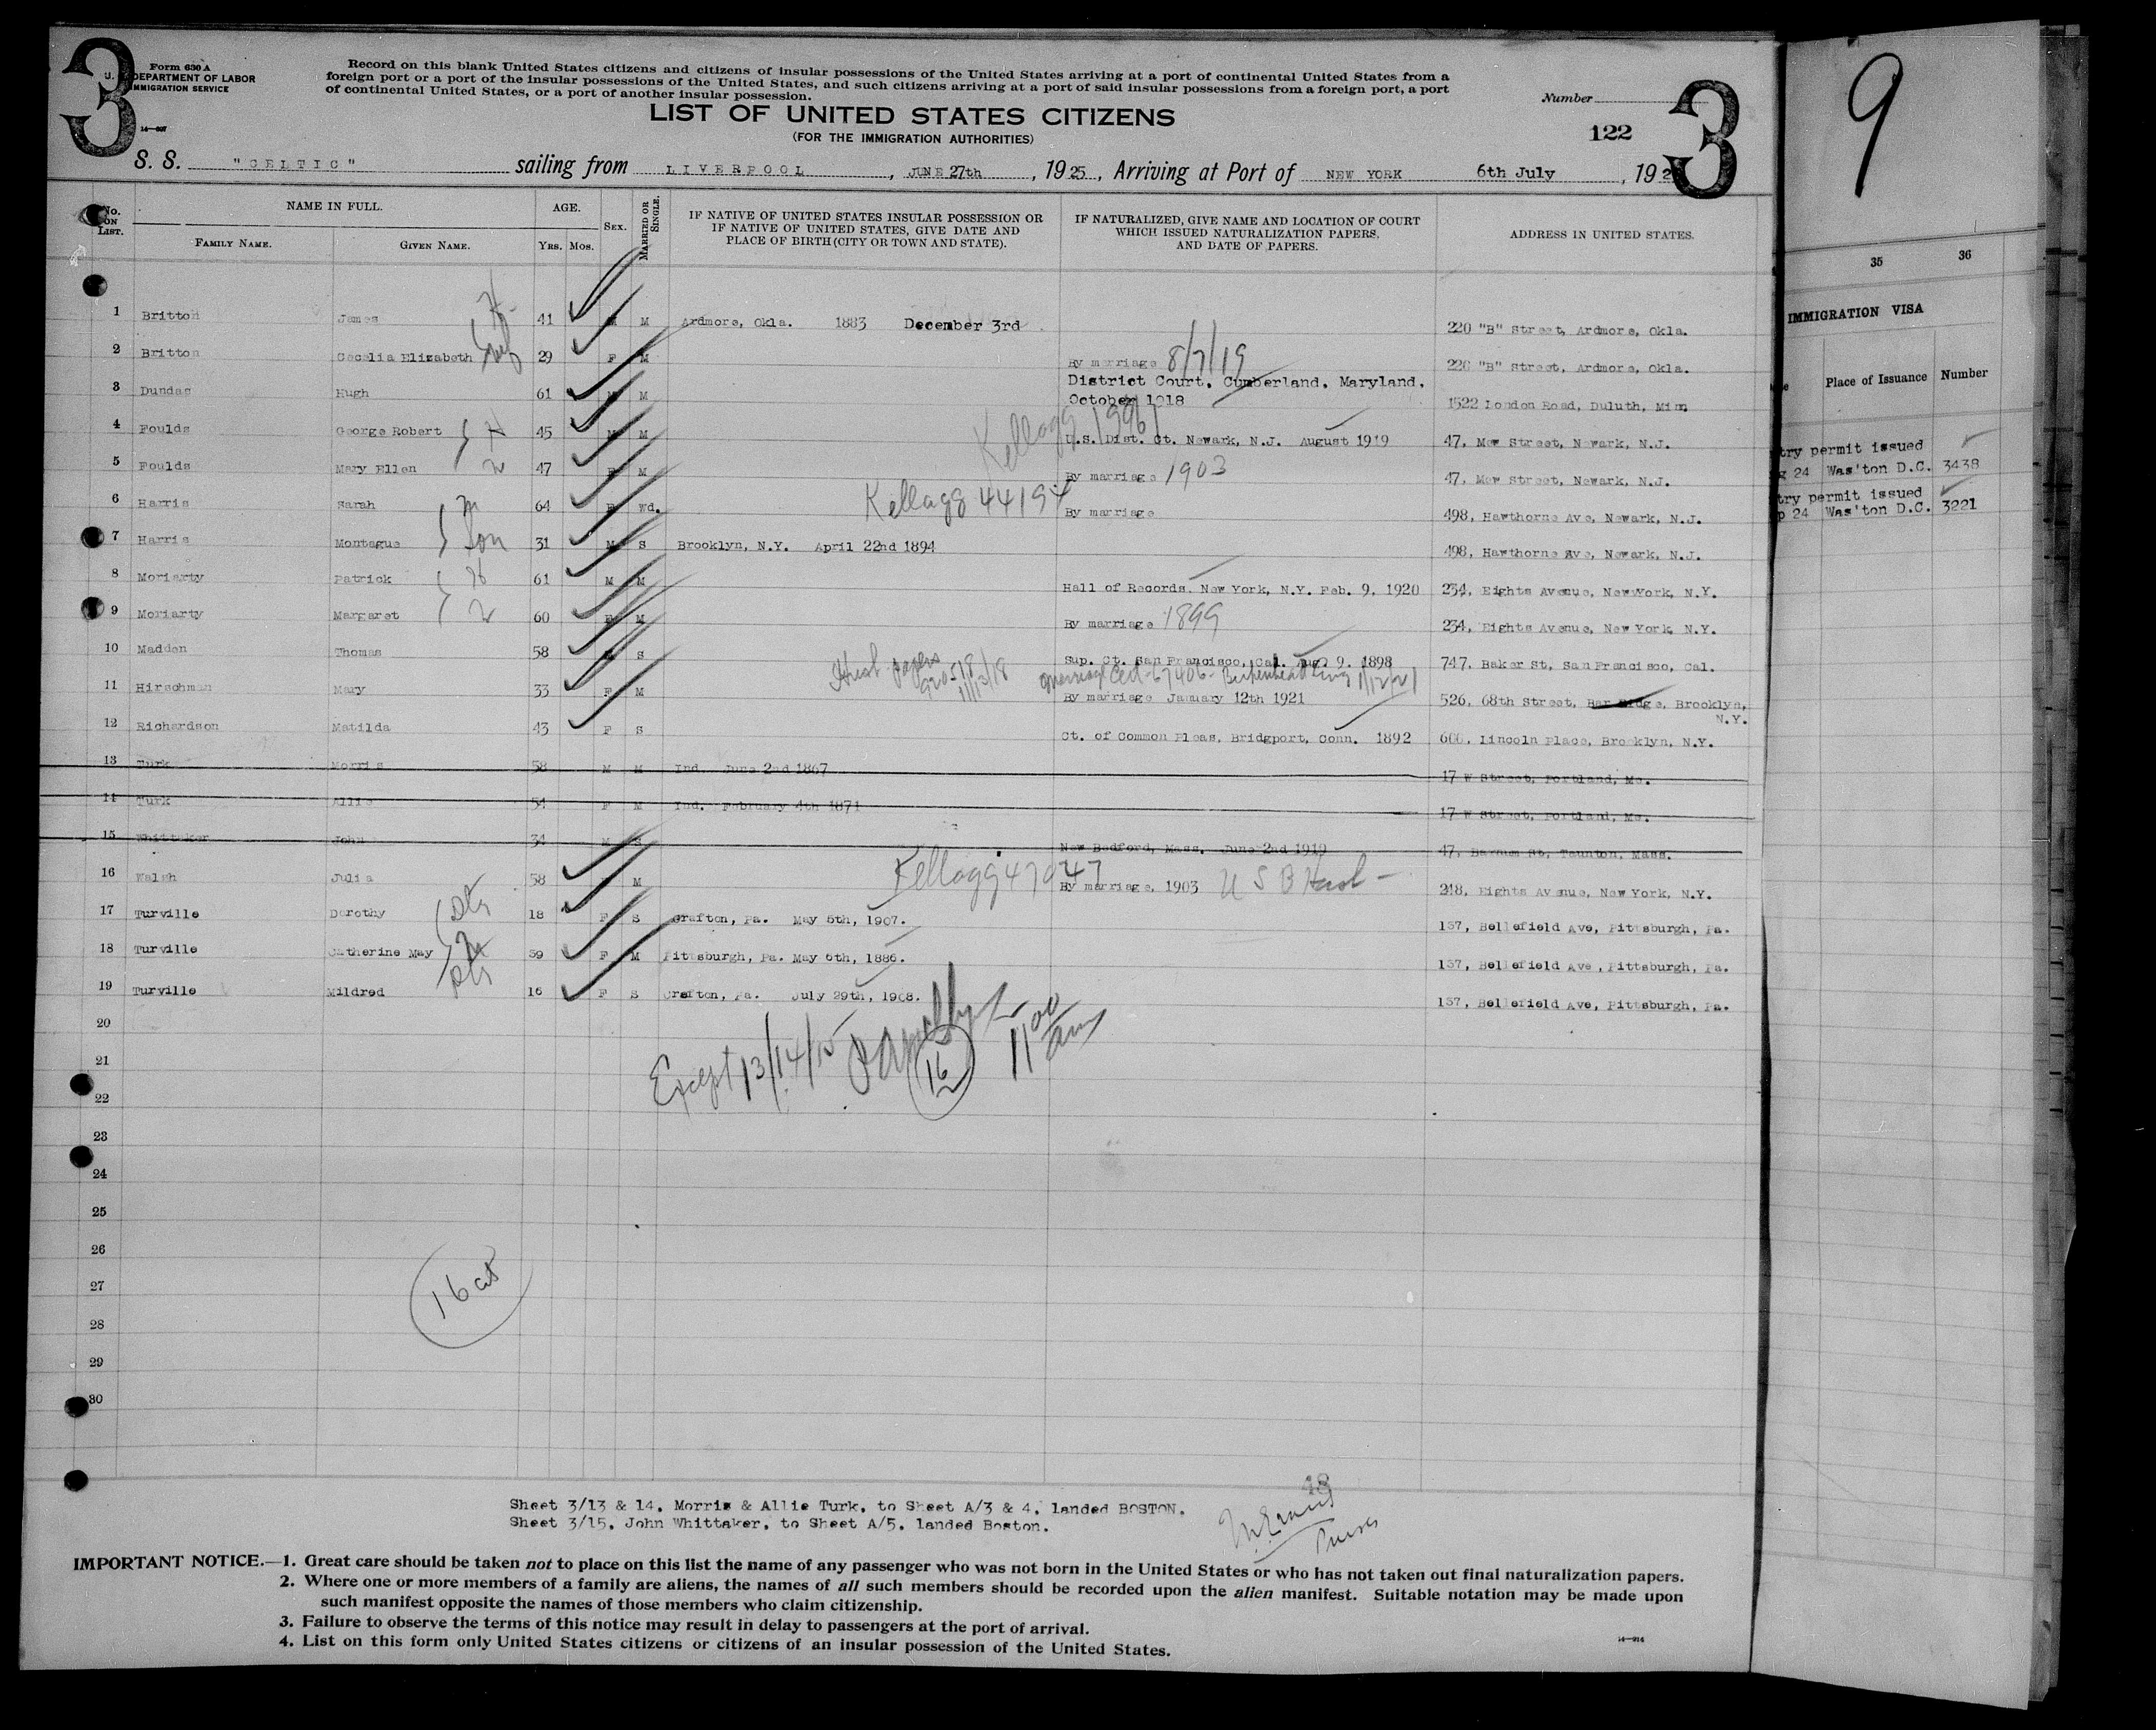 3
Form 630 A
U. S. DEPARTMENT OF LABOR
IMMIGRATION SERVICE
14—507
Record on this blank United States citizens and citizens of insular possessions of the United States arriving at a port of continental United States from a
foreign port or a port of the insular possessions of the United States, and such citizens arriving at a port of said insular possessions from a foreign port, a port
of continental United States, or a port of another insular possession.
LIST OF UNITED STATES CITIZENS
(FOR THE IMMIGRATION AUTHORITIES)
Number
122
3
9
S. S. "CELTIC" sailing from LIVERPOOL, JUNE 27th, 1925, Arriving at Port of NEW YORK 6th July, 192
No. ON LIST. NAME IN FULL. FAMILY NAME. GIVEN NAME. AGE. YRS. MOS. SEX. MARRIED OR SINGLE. IF NATIVE OF UNITED STATES INSULAR POSSESSION OR IF NATIVE OF UNITED STATES, GIVE DATE AND PLACE OF BIRTH (CITY OR TOWN AND STATE). IF NATURALIZED, GIVE NAME AND LOCATION OF COURT WHICH ISSUED NATURALIZATION PAPERS, AND DATE OF PAPERS. ADDRESS IN UNITED STATES.
1 Britton James H 41 M M Ardmore, Okla. 1883 December 3rd 220 "B" Street, Ardmore, Okla.
2 Britton Cecelia Elizabeth wf 29 F M By marriage 8/7/19 220 "B" Street, Ardmore, Okla.
3 Dundas Hugh 61 M M District Court, Cumberland, Maryland. October 1918 1522 London Road, Duluth, Minn
4 Foulds George Robert H 45 M M U.S. Dist. Ct. Newark, N.J. August 1919 47, Mew Street, Newark, N.J.
5 Foulds Mary Ellen W 47 F M Kellogg By marriage 1903 47, Mew Street, Newark, N.J.
6 Harris Sarah M 64 F Wd. Kellogg 44194 By marriage 498, Hawthorne Ave, Newark, N.J.
7 Harris Montague Son 31 M S Brooklyn, N.Y. April 22nd 1894 498, Hawthorne Ave, Newark, N.J.
8 Moriarty Patrick H 61 M M Hall of Records, New York, N.Y. Feb. 9, 1920 234, Eights Avenue, New York, N.Y.
9 Moriarty Margaret W 60 F M By marriage 1899 234, Eights Avenue, New York, N.Y.
10 Madden Thomas 58 M S Sup. Ct. San Francisco, Cal. Aug. 9. 1898 747, Baker St, San Francisco, Cal.
11 Hirschman Mary 33 F M Husb papers 920518 11/13/18 Marriage Cert 67406 Birkenhead Eng 1/12/21 By marriage January 12th 1921 526, 68th Street, Bay Ridge, Brooklyn, N.Y.
12 Richardson Matilda 43 F S Ct. of Common Pleas, Bridgport, Conn. 1892 600, Lincoln Place, Brooklyn, N.Y.
13 Turk Morris 58 M M Ind. June 2nd 1867 17 W Street, Portland, Me.
14 Turk Allie 54 F M Ind. February 4th 1871 17 W Street, Portland, Me.
15 Whittaker John 34 M S New Bedford, Mass. June 2nd 1919 47, Barnum St, Taunton, Mass.
16 Walsh Julia 58 M Kellogg 47047 By marriage, 1903 U S B Husb 248, Eights Avenue, New York, N.Y.
17 Turville Dorothy Dtr 18 F S Crafton, Pa. May 8th, 1907. 137, Bellefield Ave, Pittsburgh, Pa.
18 Turville Catherine May M 39 F M Pittsburgh, Pa. May 6th, 1886. 137, Bellefield Ave, Pittsburgh, Pa.
19 Turville Mildred Dtr 16 F S Crafton, Pa. July 29th, 1908. 137, Bellefield Ave, Pittsburgh, Pa.
20
Except 13/14/15
16
11 00 am
21
22
23
24
25
26
27
16
28
29
30
35 36
IMMIGRATION VISA
Place of Issuance Number
try permit issued
24 Was'ton D.C. 3438
try permit issued
24 Was'ton D.C. 3221
Sheet 3/13 & 14, Morris & Allie Turk, to Sheet A/3 & 4, landed BOSTON.
Sheet 3/15, John Whittaker, to Sheet A/5, landed Boston.
Purser
IMPORTANT NOTICE.—1. Great care should be taken not to place on this list the name of any passenger who was not born in the United States or who has not taken out final naturalization papers.
2. Where one or more members of a family are aliens, the names of all such members should be recorded upon the alien manifest. Suitable notation may be made upon
such manifest opposite the names of those members who claim citizenship.
3. Failure to observe the terms of this notice may result in delay to passengers at the port of arrival.
4. List on this form only United States citizens or citizens of an insular possession of the United States.